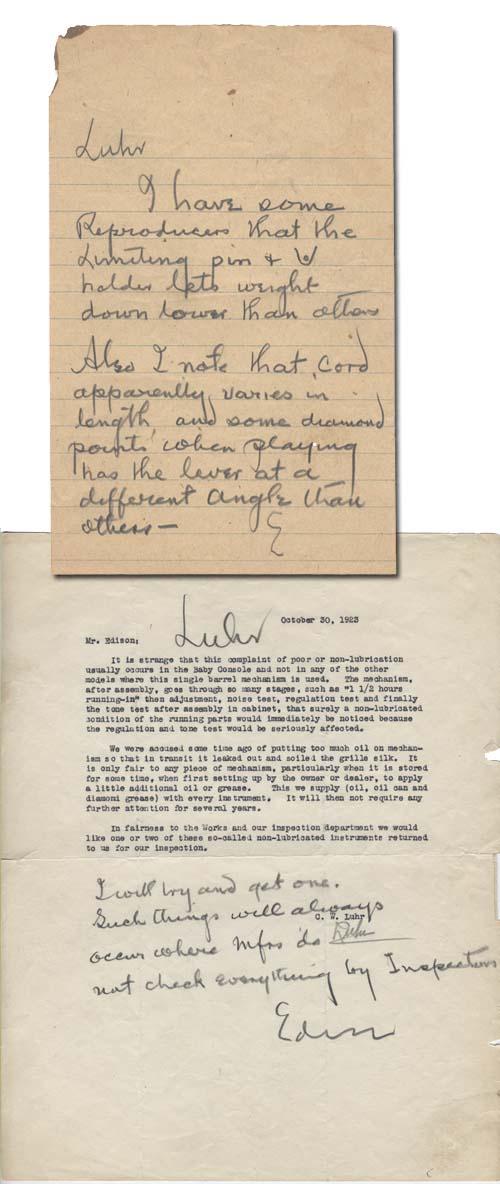 Luhr
I have some
Reproducers that the
Limiting pin &
holder lets weight
down lower than others
Also I note that cord
apparently varies in
length, and some diamond
points when playing
has the lever at a
different angle than
others—
E
October 30, 1923
Mr. Edison:
Luhr
It is strange that this complaint of poor or non-lubrication
usually occurs in the Baby Console and not in any of the other
models where this single barrel mechanism is used. The mechanism,
after assembly, goes through so many stages, such as "1 1/2 hours
running-in" then adjustment, noise test, regulation test and finally
the tone test after assembly in cabinet, that surely a non-lubricated
condition of the running parts would immediately be noticed because
the regulation and tone test would be seriously affected.
We were accused some time ago of putting too much oil on mechan-
ism so that in transit it leaked out and soiled the grille silk. It
is only fair to any piece of mechanism, particularly when it is stored
for some time, when first setting up by the owner or dealer, to apply
a little additional oil or grease. This we supply (oil, oil can and
diamond grease) with every instrument. It will then not require any
further attention for several years.
In fairness to the Works and our inspection department we would
like one or two of these so-called non-lubricated instruments returned
to us for our inspection.
C. W. Luhr
Luhr
I will try and get one.
Such things will always
occur where mfrs do
not check everything by Inspectors
Edison